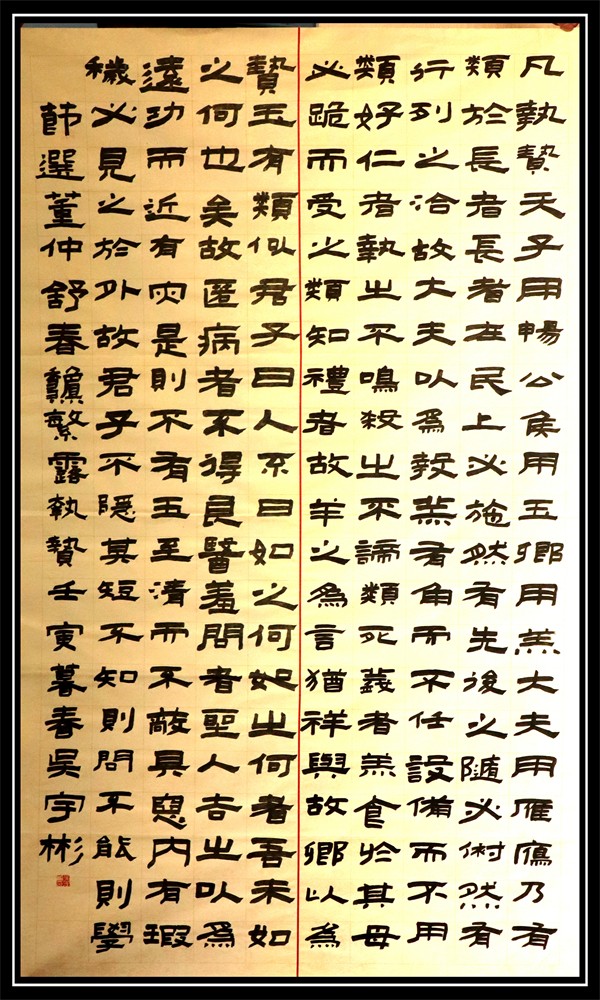 凡執贄天子用暢公侯用玉卿用羔大夫用雁鴈乃有
類於長者長者在民上必施然有先後之隨必俶然有
行列之治故大夫以為教羔有角而不任設備而不用
類好仁者執之不鳴殺之不諦類死義者羔食於其母
必跪而受之類知禮者故羊之為言猶祥與故卿以為
贄玉有類似君子曰人不曰如之何如之何者吾未如
之何也矣故匿病者不得良醫羞問者聖人去之以為
遠功而近有災是則不有玉至清而不蔽其惡內有瑕
穢必見之於外故君子不隱其短不知則問不能則學
節選董仲舒春龝繁露執贄壬寅暮春吳宇彬